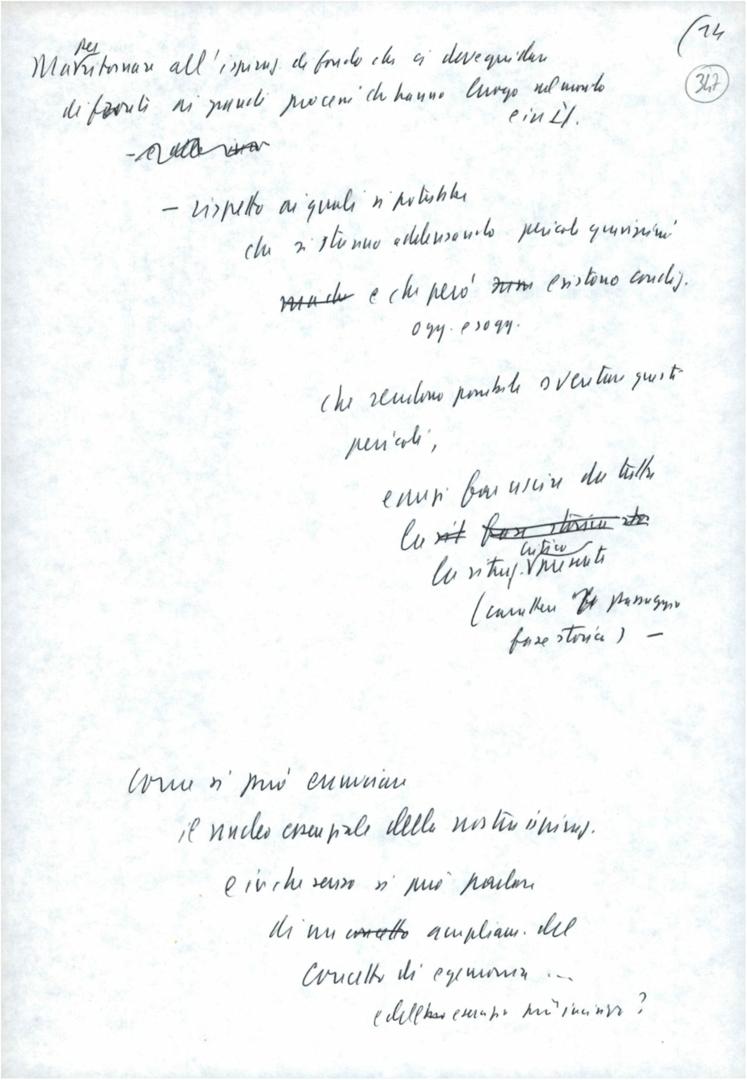 (14
347
per
Ma ritornare all'ispiraz. di fondo che ci deve guidare
di fronte ai grandi processi che hanno luogo nel mondo
e in It.
- rispetto ai quali si potrebbe
che si stanno addensando pericoli gravissimi
ma che e che però non esistono condiz.
ogg. e sogg.
che rendono possibile sventare questi
pericoli,
e anzi far uscire da tutta
la sit fase storica
critica
la situaz. presente
(carattere di passaggio
fase storica) -
Come si può enunciare
il nucleo essenziale della nostra ispiraz.
e in che senso si può parlare
di un concetto ampliam. del
concetto di egemonia ...
e del suo esempio più incisivo?